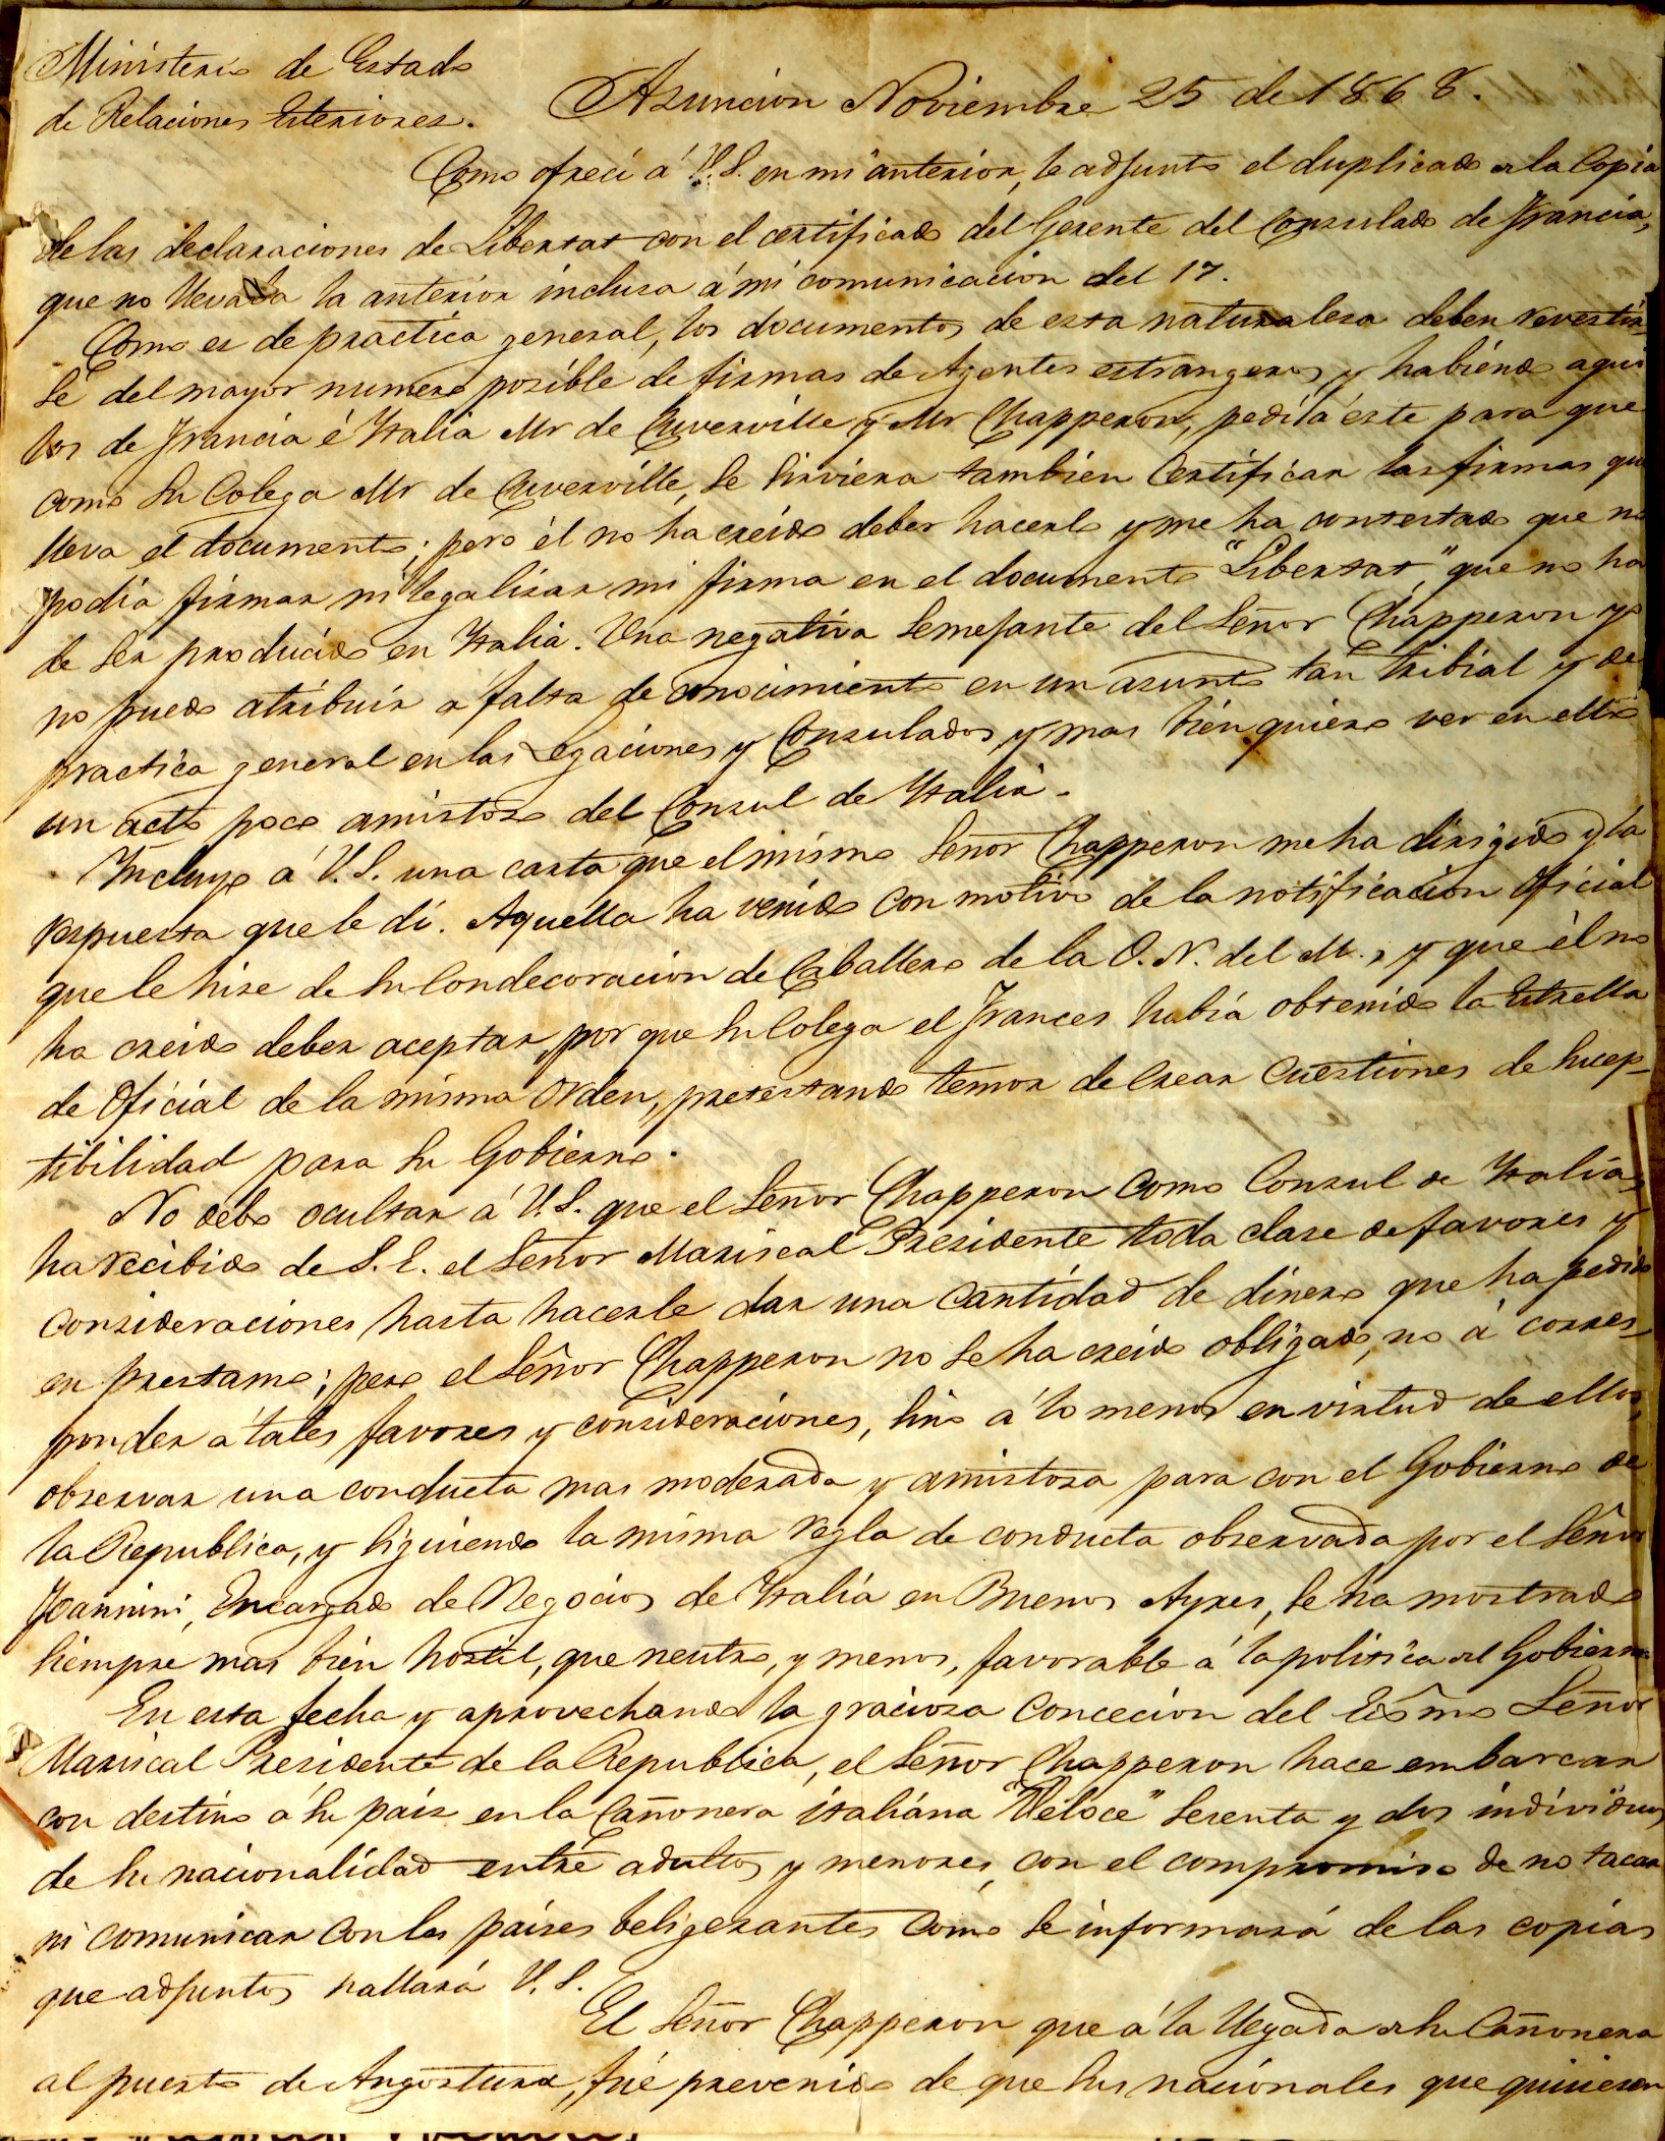 Ministerio de Estado
de Relaciones Esteriores.
Asuncion Noviembre 25 de 1868.
Como ofreci á V.S. en mi anterior, le adjunto el duplicado de la Copia
de las declaraciones de Libertat con el certificado del Gerente del Consulado de Francia,
que no llevaba la anterior inclusa á mi comunicacion del 17.
Como es de practica general, los documentos de esta naturalesa deben revestir
se del mayor numero posible de firmas de Agentes estrangeros, y habiendo aqui
los de Francia é Italia Mr de Cuverville y Mr Chapperon, pedi á este para que
como su Colega Mr de Cuverville, se sirviera tambien Certificar las firmas que
lleva el documento; pero él no ha creido deber hacerlo y me ha contestado que no
podia firmar ni legalizar mi firma en el documento "Libertat", que no ha
de ser producido en Italia. Una negativa semejante del Señor Chapperon yo
no puedo atribuir a falta de conocimiento en un asunto tan tribial y de
practica general en las Legaciones y Consulados y mas bien quiero ver en ello
un acto poco amistoso del Consul de Italia.
Incluyo á V.S. una carta que el mismo Señor Chapperon me ha dirigido y la
respuesta que le di. Aquella ha venido con motivo de la notificacion oficial
que le hise de su Condecoracion de Caballero de la O. N. del M., y que él no
ha creido deber aceptar, por que su Colega el Frances habia obtenido la Estrella
de Oficial de la misma Orden, pretestando temor de crear Cuestiones de sucep-
tibilidad para su Gobierno.
No debo ocultar á V.S. que el Señor Chapperon como Consul de Italia,
ha recibido de S.E. el Señor Mariscal Presidente toda clase de favores y
consideraciones hasta hacerle dar una cantidad de dinero que ha pedido
en prestamo; pero el Señor Chapperon no se ha creido obligado, no á corres-
ponder á tales favores y consideraciones, sino á lo menos en virtud de ellos,
observar una conducta mas moderada y amistosa para con el Gobierno de
la Republica, y siguiendo la misma regla de conducta observada por el Señor
Joannini, Encargado de Negocios de Italia en Buenos Ayres, se ha mostrado
siempre mas bien hostil, que neutro, y menos, favorable á la politica del Gobierno.
En esta fecha y aprovechando la graciosa concecion del Exmo Señor
Mariscal Presidente de la Republica, el Señor Chapperon hace embarcar
con destino á su pais en la Cañonera italiana "Veloce" sesenta y dos individuos
de su nacionalidad entre adultos y menores, con el compromiso de no tocar
ni comunicar con los paises beligerantes como se informará de las copias
que adjuntos hallará V.S.
El Señor Chapperon que á la llegada de su Cañonera
al puerto de Angostura, fué prevenido de que sus nacionales que quisiesen